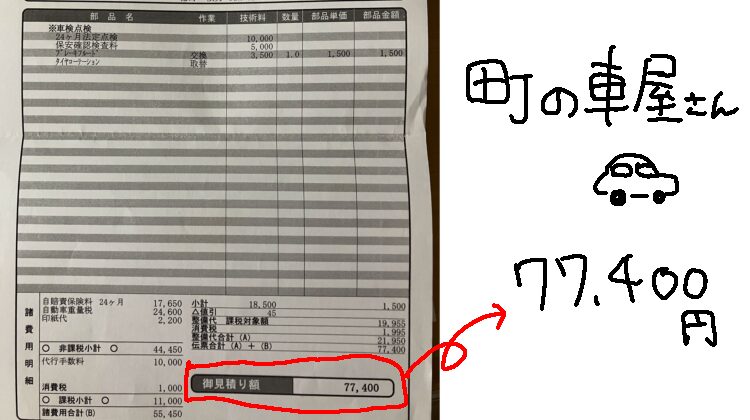 部品名 作業 技術料 数量 部品単価 部品金額
※車検点検
24ヶ月法定点検 10,000
保安確認検査料 5,000
ブレーキフルード 交換 3,500 1.0 1,500 1,500
タイヤローテーション 取替
諸費用明細
自賠責保険料 24ヶ月 17,650
自動車重量税 24,600
印紙代 2,200
○ 非課税小計 ○ 44,450
代行手数料 10,000
消費税 1,000
○ 課税小計 ○ 11,000
諸費用合計(B) 55,450
小計 18,500 1,500
△値引 45
整備代 課税対象額 19,955
消費税 1,995
整備代合計(A) 21,950
伝票合計(A)+(B) 77,400
御見積り額 77,400
町の車屋さん
77,400
円